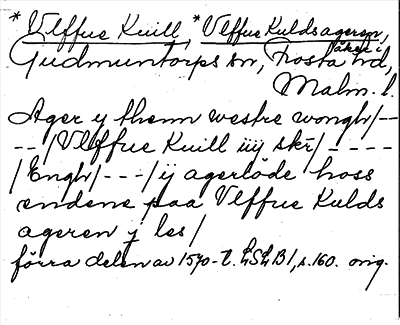 *Vlffue Kuill, *Vlffue Kulds ageren,
åker i
Gudmuntorps sn, Frosta hd,
Malm. l.
Ager y thenn westre wongh/--
--/Vlffue Kuill iiij skr/----
/Engh/---/ij agerløde hoss
endene paa Vlffue Kulds
ageren j les/
förra delen av 1570-t. LSLB1, s. 160. orig.